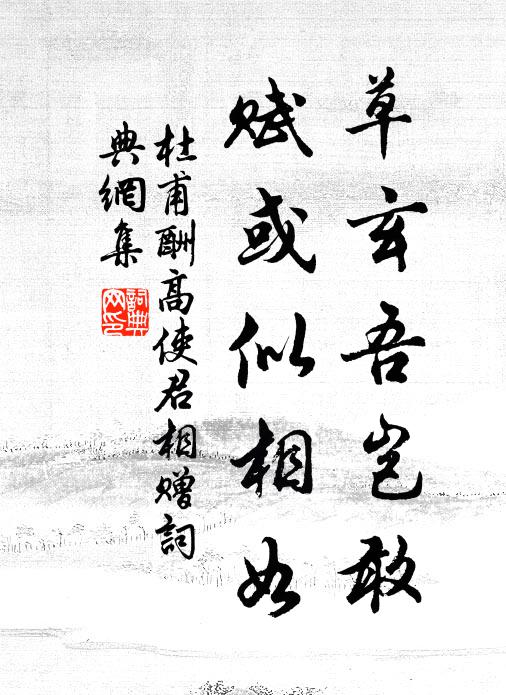 草玄吾岂敢
赋或似相如
杜甫酬高使君相赠词
典網集
詞典网印